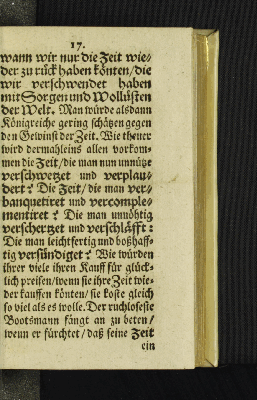 17.
wann wir nur die Zeit wie⸗
der zu rück haben könten/die
wir verschwendet haben
mit Sorgen und Wollüsten
der Welt. Man würde alsdann
Königreiche gering schätzen gegen
den Gewinst der Zeit. Wie theuer
wird dermahleins allen vorkom⸗
men die Zeit/die man nun unnütze
verschwetzet und verplau⸗
dert? Die Zeit/die man ver⸗
banquetiret und vercomple⸗
mentiret? Die man unnöhtig
verschertzet und verschläfft:
Die man leichtfertig und boßhaff⸗
tig versündiget? Wie würden
ihrer viele ihren Kauff für glück⸗
lich preisen/wenn sie ihre Zeit wie⸗
der kauffen könten/sie koste gleich
so viel als es wolle. Der ruchloseste
Bootsmann fängt an zu beten/
wenn er fürchtet/daß seine Zeit
ein